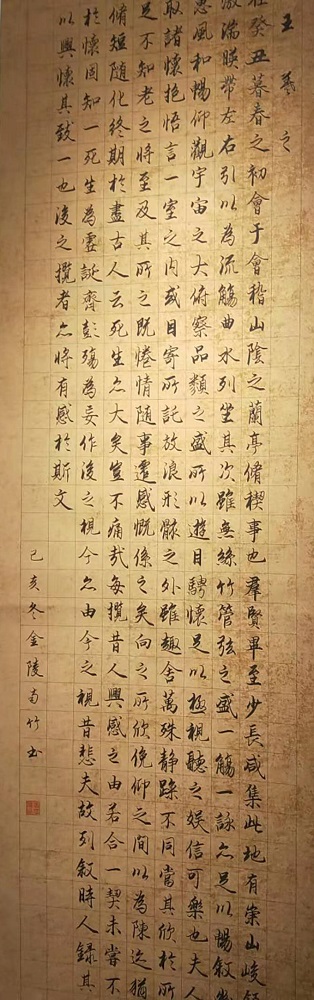 王羲之
癸丑暮春之初會于會稽山陰之蘭亭脩禊事也羣賢畢至少長咸集此地有崇山峻
激湍暎帶左右引以為流觴曲水列坐其次雖無絲竹管弦之盛一觴一詠亦足以暢敘
風和暢仰觀宇宙之大俯察品類之盛所以遊目騁懷足以極視聽之娛信可樂也夫人
取諸懷抱悟言一室之內或因寄所託放浪形骸之外雖趣舍萬殊静躁不同當其欣於所
足不知老之將至及其所之既惓情隨事遷感慨係之矣向之所欣俛仰之間以為陳迹猶
脩短隨化終期於盡古人云死生亦大矣豈不痛哉每攬昔人興感之由若合一契未嘗不
於懷固知一死生為虛誕齊彭殤為妄作後之視今亦由今之視昔悲夫故列敘時人録其
以興懷其致一也後之攬者亦將有感於斯文
己亥冬金陵南竹书